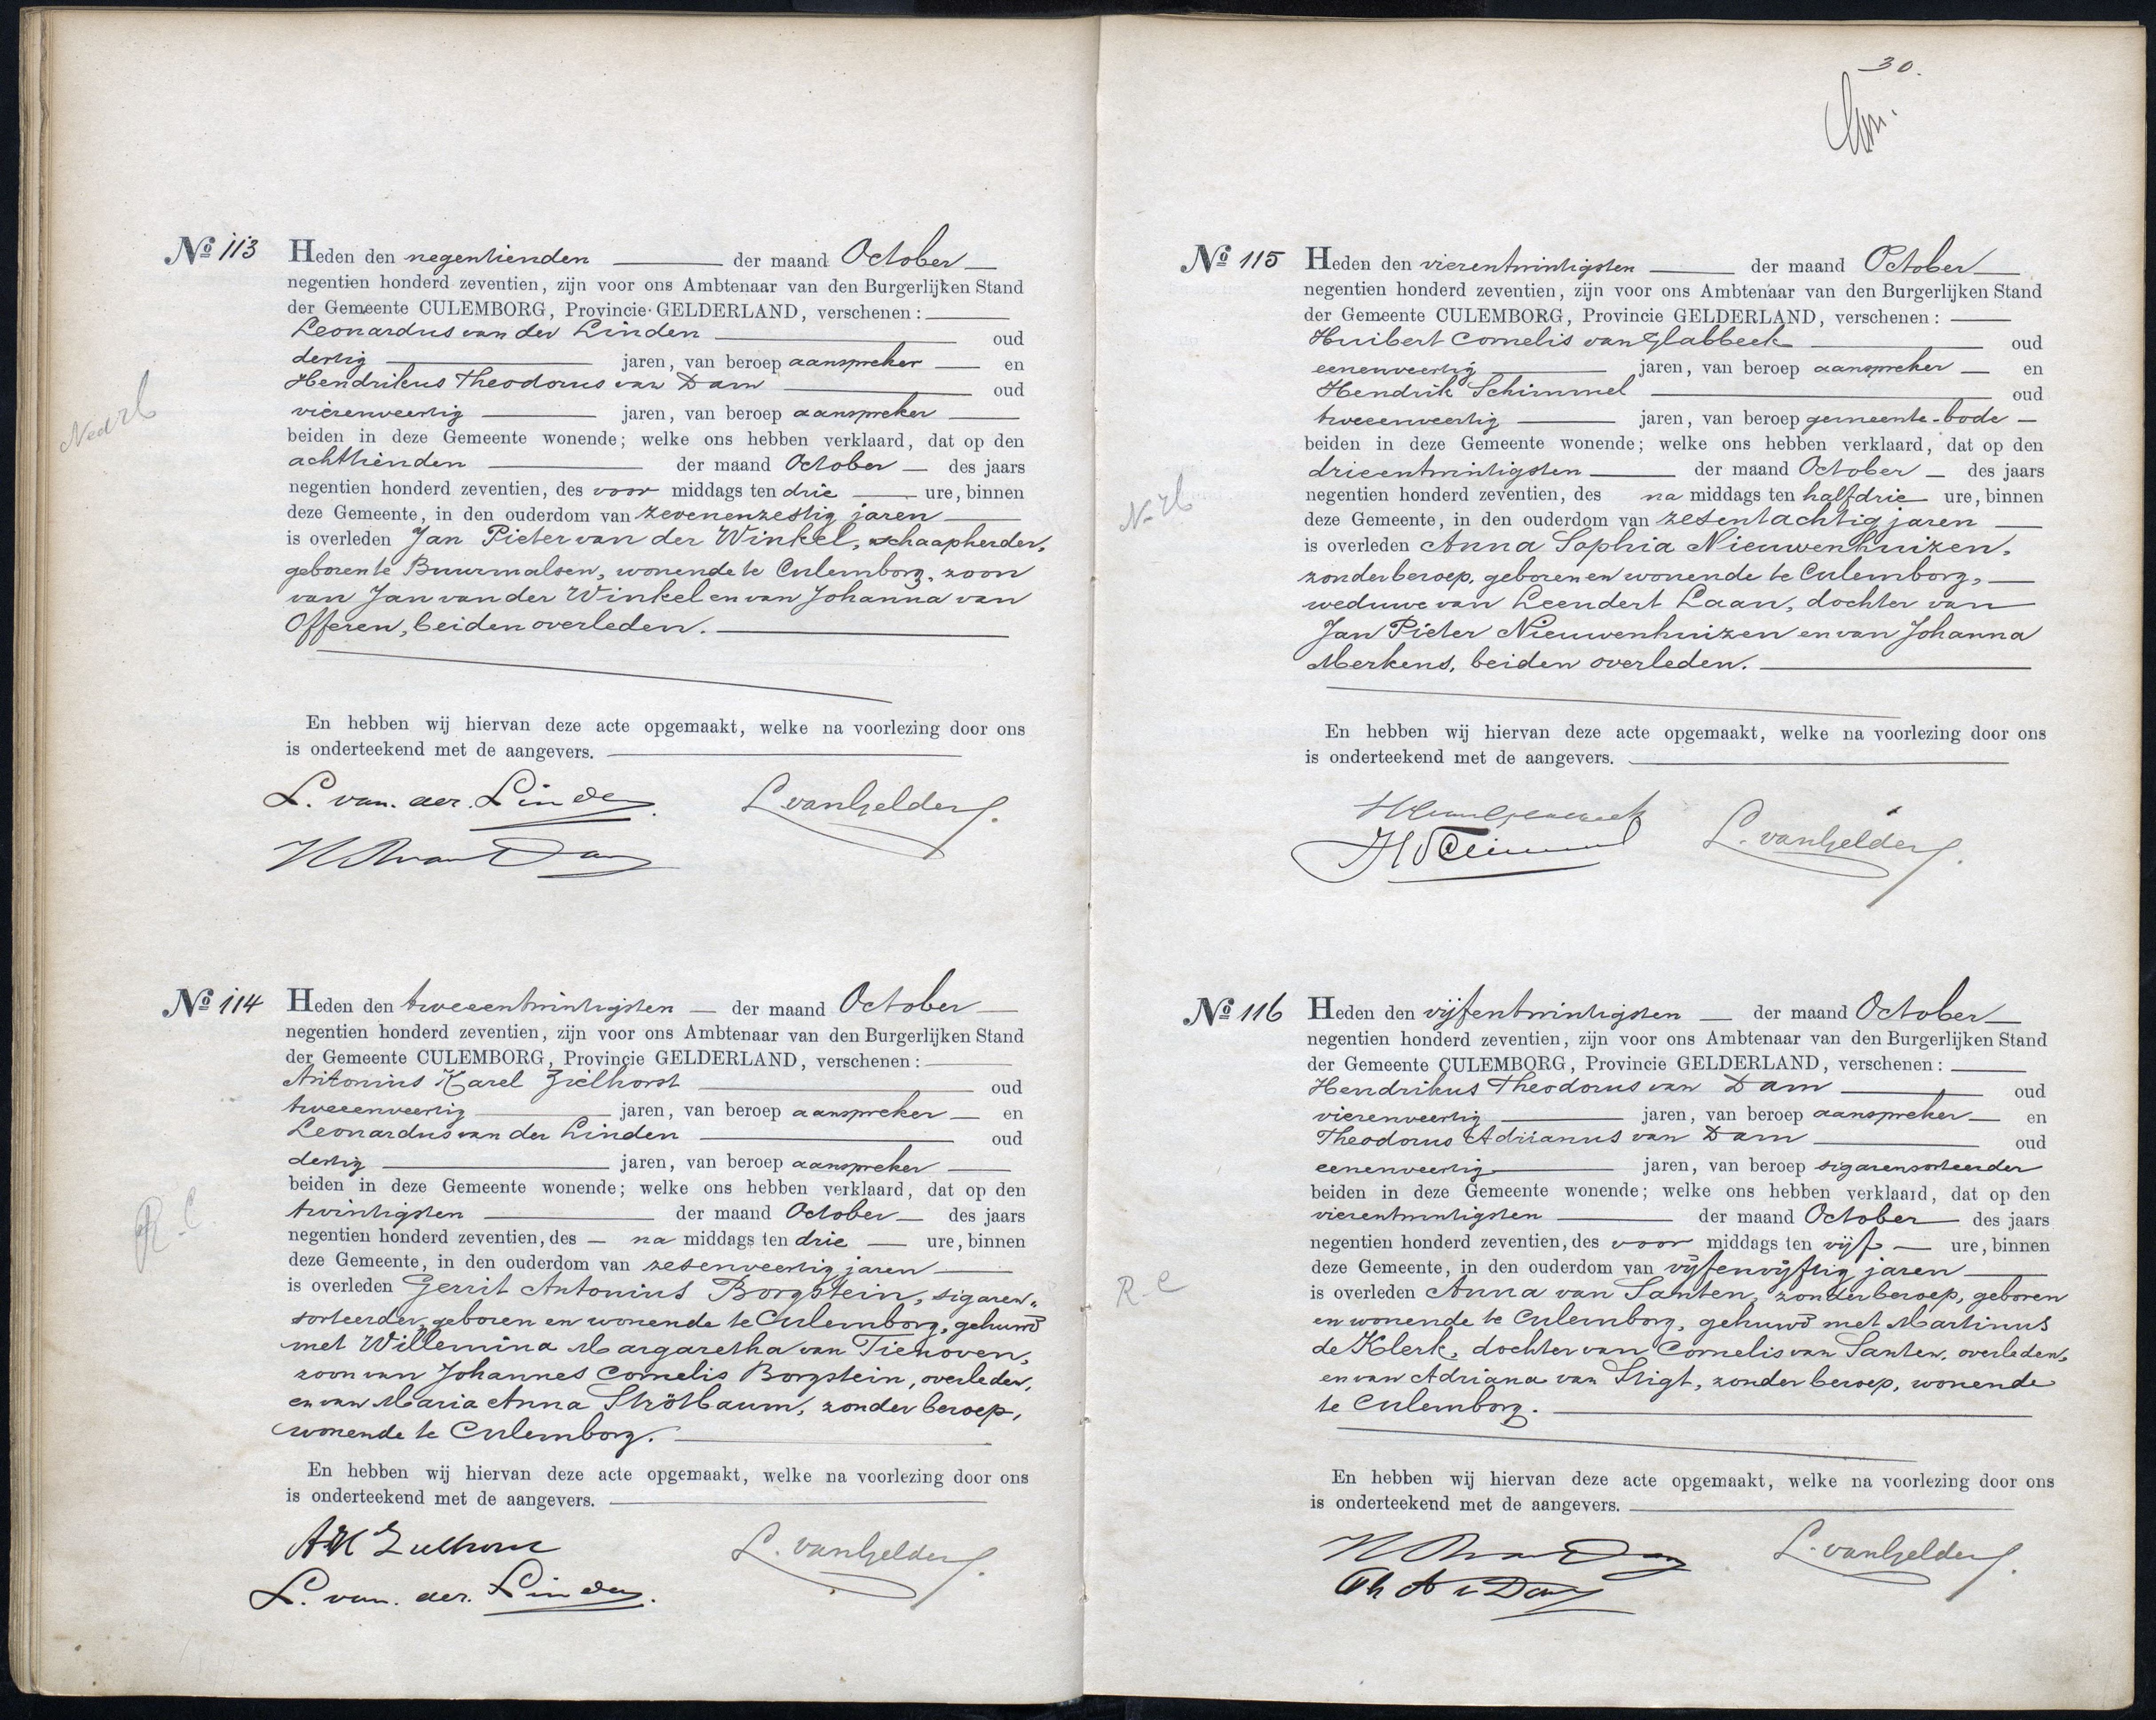 Nº 113 Heden den negentienden der maand October
negentien honderd zeventien, zijn voor ons Ambtenaar van den Burgerlijken Stand
der Gemeente CULEMBORG, Provincie GELDERLAND, verschenen:
Leonardus van der Linden oud
dertig jaren, van beroep aanspreker en
Hendrikus Theodorus van Dam oud
vierenveertig jaren, van beroep aanspreker
beiden in deze Gemeente wonende; welke ons hebben verklaard, dat op den
achttienden der maand October des jaars
negentien honderd zeventien, des voor middags ten drie ure, binnen
deze Gemeente, in den ouderdom van zevenenzestig jaren
is overleden Jan Pieter van der Winkel, schaapherder,
geboren te Buurmalsen, wonende te Culemborg, zoon
van Jan van der Winkel en van Johanna van
Offeren, beiden overleden.
En hebben wij hiervan deze acte opgemaakt, welke na voorlezing door ons
is onderteekend met de aangevers.
L. van der Linden L. van Gelder
H Th van Dam
Nº 114 Heden den tweeentwintigsten der maand October
negentien honderd zeventien, zijn voor ons Ambtenaar van den Burgerlijken Stand
der Gemeente CULEMBORG, Provincie GELDERLAND, verschenen:
Antonius Karel Zielhorst oud
tweeenveertig jaren, van beroep aanspreker en
Leonardus van der Linden oud
dertig jaren, van beroep aanspreker
beiden in deze Gemeente wonende; welke ons hebben verklaard, dat op den
twintigsten der maand October des jaars
negentien honderd zeventien, des na middags ten drie ure, binnen
deze Gemeente, in den ouderdom van zesenveertig jaren
is overleden Gerrit Antonius Borgstein, sigaren-
sorteerder, geboren en wonende te Culemborg, gehuwd
met Willemina Margaretha van Tienoven,
zoon van Johannes Cornelis Borgstein, overleden,
en van Maria Anna Strötbaum, zonder beroep,
wonende te Culemborg.
En hebben wij hiervan deze acte opgemaakt, welke na voorlezing door ons
is onderteekend met de aangevers.
AK Zielhorst L. van Gelder
L. van der Linden
R.C
30.
Nº 115 Heden den vierentwintigsten der maand October
negentien honderd zeventien, zijn voor ons Ambtenaar van den Burgerlijken Stand
der Gemeente CULEMBORG, Provincie GELDERLAND, verschenen:
Huibert Cornelis van Glabbeek oud
eenenveertig jaren, van beroep aanspreker en
Hendrik Schimmel oud
tweeenveertig jaren, van beroep gemeente-bode
beiden in deze Gemeente wonende; welke ons hebben verklaard, dat op den
drieentwintigsten der maand October des jaars
negentien honderd zeventien, des na middags ten half drie ure, binnen
deze Gemeente, in den ouderdom van zesentachtig jaren
is overleden Anna Sophia Nieuwenhuizen,
zonder beroep, geboren en wonende te Culemborg,
weduwe van Leendert Laan, dochter van
Jan Pieter Nieuwenhuizen en van Johanna
Merkens, beiden overleden.
En hebben wij hiervan deze acte opgemaakt, welke na voorlezing door ons
is onderteekend met de aangevers.
L. van Gelder
H Schimmel
Nº 116 Heden den vijfentwintigsten der maand October
negentien honderd zeventien, zijn voor ons Ambtenaar van den Burgerlijken Stand
der Gemeente CULEMBORG, Provincie GELDERLAND, verschenen:
Hendrikus Theodorus van Dam oud
vierenveertig jaren, van beroep aanspreker en
Theodorus Adrianus van Dam oud
eenenveertig jaren, van beroep sigarensorteerder
beiden in deze Gemeente wonende; welke ons hebben verklaard, dat op den
vierentwintigsten der maand October des jaars
negentien honderd zeventien, des voor middags ten vijf ure, binnen
deze Gemeente, in den ouderdom van vijfenvijftig jaren
is overleden Anna van Santen, zonder beroep, geboren
en wonende te Culemborg, gehuwd met Martinus
de Klerk, dochter van Cornelis van Santen, overleden,
en van Adriana van Stigt, zonder beroep, wonende
te Culemborg.
En hebben wij hiervan deze acte opgemaakt, welke na voorlezing door ons
is onderteekend met de aangevers.
H Th van Dam L. van Gelder
Th A v Dam
R.C